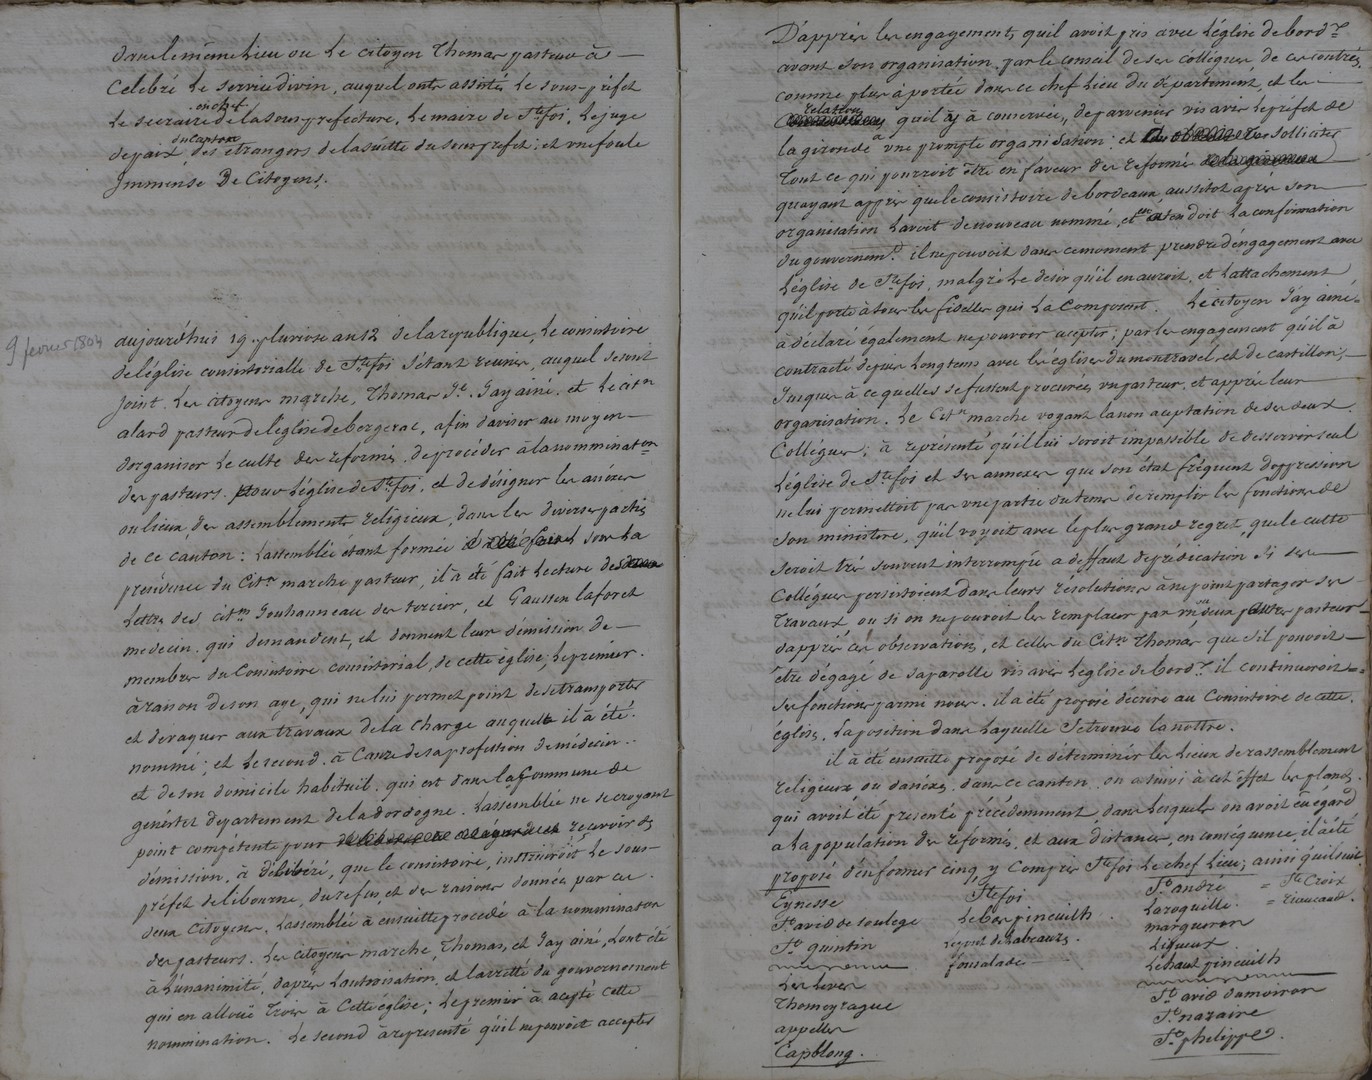 dans le même lieu ou Le citoyen Thomas pasteur à
Celebré Le service divin, auquel onts assistés Le sous-préfet
en chef
Le secraire de la sous prefecture, Le maire de Ste foi, Le juge
du Canton
de paix des etrangers de la suitte du sous prefet; et une foule
Immense De Citoyens.
9 fevrier 1804
aujourdhui 19. pluviose an 12 de la republique, Le consistoire
de l'église consistorialle de Ste foi s'étant reunis, auquel se sont
joint Les citoyens marche, Thomas Je. Jay ainé. et Le citn
alard pasteur de l'église de bergerac, afin d'aviser au moyen
d'organiser Le culte des reformés. de procéder à la nomminaton
des pasteurs. pour L'église de Ste foi. et de désigner les anéxes
ou lieux, des assemblements religieux, dans les diverses partis
de ce canton: L'assemblée étant formée sous La
présidence du Citn marche pasteur, il à été fait Lecture des
Lettre des citns Jouhanneau des torcier, et Gaussen laforet
medecin, qui demandent, et donnent leur démission de
membres du Consistoire consistorial, de cette église, Le premier.
à raison de son age, qui ne lui permet point de se transporter
et de vaquer aux travaux de la charge auquelle il à été.
nommé; et Le second. à Cause de sa profession de médecin..
et de son domicile habituil. qui est dans la Commune de
genestet departement de la dordogne. L'assemblée ne se croyant
point compétente pour recevoir ces
démission, à délibéré, que le consistoire, instruiroit Le sous-
préfet de libourne, du refus, et des raisons données par ce.
deux Citoyens, L'assemblée à ensuitte procedé à la nomminaton
des pasteurs. Les citoyens marche, Thomas, et Jay ainé, L'ont été
à L'unanimité, daprès L'autorisation, et L'arretté du gouvernement
qui en alloüe Trois à Cette église; Le premier à acepté cette
nommination. Le second à representé qu'il ne pouvoit accepter
D'apprès les engagements quil avoit pris avec L'église de bordx
avant son organisation, par le conseil de ses collégues, de ces contrés,
comme plus à portée dans ce chef Lieu du département, et les
relations
quil à à conservées, de parvenir vis avis Le prefet de
la gironde à une prompte organisation; et solliciter
Tout ce qui pourroit être en faveur des reformés
qu'ayant appris que le consistoire de bordeaux, aussitot après son
organisation L'avoit de nouveau nommé, et en attendoit La confirmation
du gouvernemt. il ne pouvoit dans ce moment prendre d'engagement avec
L'église de Ste foi, malgré Le desir qu'il en auroit, et L'attachement
qu'il porte à tous les fidelles qui La Composent. Le citoyen Jay ainé
à déclaré également ne pouvoir acepter; par les engagement qu'il à
contracté depuis Longtems avec les églises du montravel, et de castillon,
Jusques à ce quelles se fussent procurées, un pasteur, et apprès leur
organisation. Le Citn marche voyant La non aceptation de ses deux.
Collégues; à représenté qu'il lui seroit impossible de desservir seul
L'église de Ste foi et ses annexes que son état fréquent d'oppression
ne lui permettoit pas une partie du tems de remplir les fonctions de
son ministere, qu'il voyoit avec le plus grand regret, que le culte
seroit très souvent interrompü a deffaut de prédication, si ses
Collégues persistoient dans leurs résolutions à ne point partager ses
travaux, ou si on ne pouvoit les remplacer par un ou deux autres pasteur
d'apprès ces observations, et celles du Citn Thomas, que s'il pouvoit
être dégagé de sa parolle vis avis L'église de bordx il continueroit
ses fonctions parmi nous. il à été proposé d'écrire au Consistoire de cette.
église. La position dans Laquelle se trouve la nottre.
il à été ensuitte proposé de déterminér les Lieux de rassemblement
religieux ou d'anéxes dans ce canton. on a suivi à cet éffet les plands.
qui avoit été presenté précédemment, dans Lesquels on avoit eü égard
a La population des reformés, et aux distances, en conséquence, il à été
proposé d'en former cinq y Compris Ste foi Le chef Lieu; ainsi quil suit
Eynesse
St. avid de soulege
St. quintin
Les Leves
Thomeyrague
appelles
Capblong.
Ste foi
Le bas pineuilh
Le pont de Labeauze.
fonsalade
St. andré = Ste Croix
Laroquille. = Rieucaud.
margueron
Ligueux
Le haut pineuilh
St avid du moiron
St. nazaire
St. philippe.